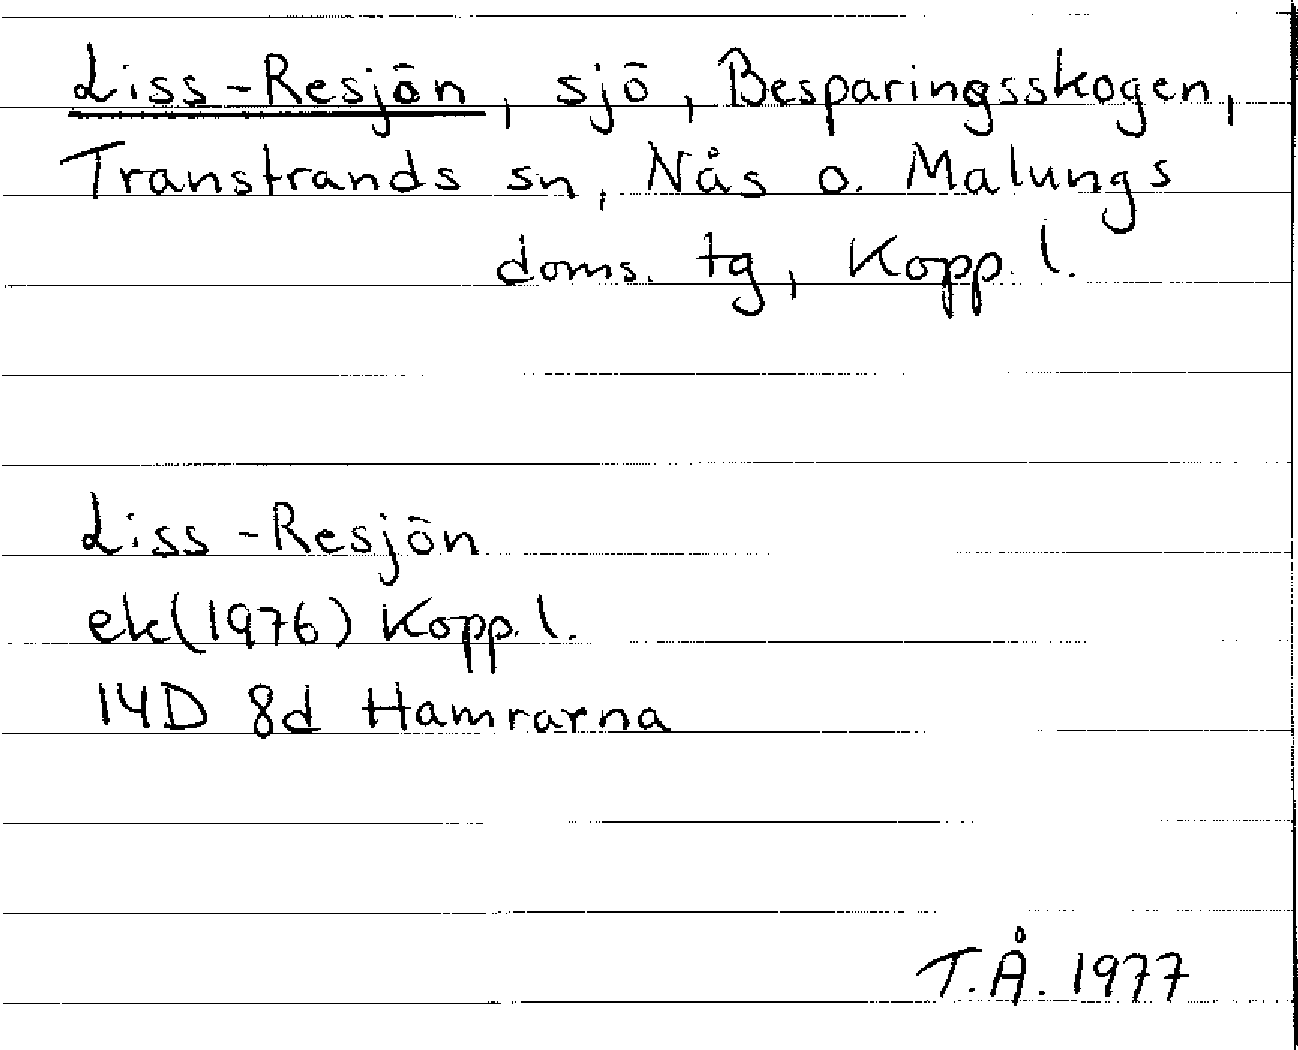 Liss-Resjön, sjö, Besparingsskogen,
Transtrands sn, Nås o. Malungs
doms. tg, Kopp. l.
Liss-Resjön
ek(1976) Kopp. l.
14D 8d Hamrarna
T.Å. 1977